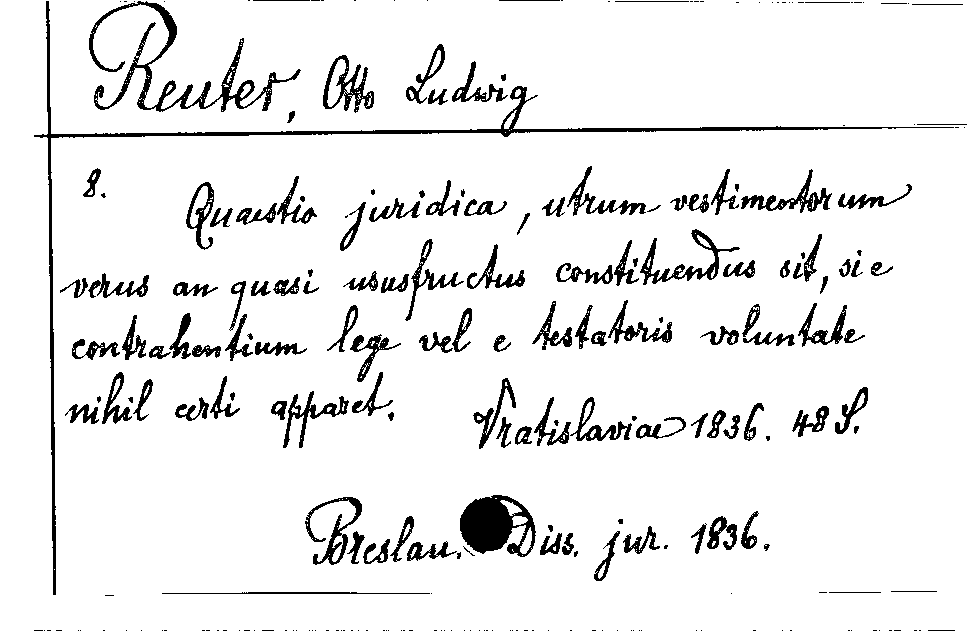 Reuter, Otto Ludwig
8. Quaestio juridica, utrum vestimentorum
verus an quasi ususfructus constituendus sit, si e
contrahentium lege vel e testatoris voluntate
nihil certi apparet. Vratislaviae 1836. 48 S.
Breslau. Diss. jur. 1836.